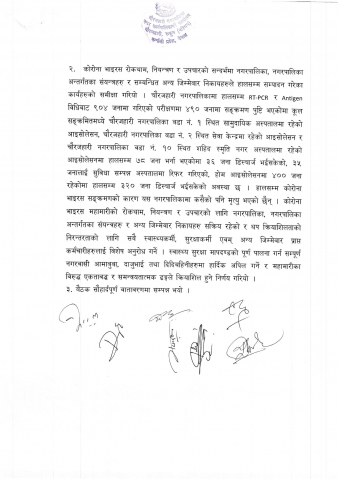 २. कोरोना भाइरस रोकथाम, नियन्त्रण र उपचारको सन्दर्भमा नगरपालिका, नगरपालिका
अन्तर्गतका संयन्त्रहरु र सम्बन्धित अन्य जिम्मेवार निकायहरुले हालसम्म सम्पादन गरेका
कार्यहरुको समीक्षा गरियो । चौरजहारी नगरपालिकामा हालसम्म RT-PCR र Antigen
विधिबाट ९०४ जनामा गरिएको परीक्षणमा ४९० जनामा सङ्क्रमण पुष्टि भएकोमा कूल
सङ्क्रमितमध्ये चौरजहारी नगरपालिका वडा नं. १ स्थित सामुदायिक अस्पतालमा रहेको
आइसोलेसन, चौरजहारी नगरपालिका वडा नं. २ स्थित सेवा केन्द्रमा रहेको आइसोलेसन र
चौरजहारी नगरपालिका वडा नं. १० स्थित शहिद स्मृति नगर अस्पतालमा रहेको
आइसोलेसनमा हालसम्म ७८ जना भर्ना भएकोमा ३६ जना डिस्चार्ज भईसकेको, ३५
जनालाई सुविधा सम्पन्न अस्पतालमा रिफर गरिएको, होम आइसोलेसनमा ४०० जना
रहेकोमा हालसम्म ३२० जना डिस्चार्ज भईसकेको अवस्था छ । हालसम्म कोरोना
भाइरस सङ्क्रमणको कारण यस नगरपालिकामा कसैको पनि मृत्यु भएको छैन् । कोरोना
भाइरस महामारीको रोकथाम, नियन्त्रण र उपचारको लागि नगरपालिका, नगरपालिका
अन्तर्गतका संयन्त्रहरु र अन्य जिम्मेवार निकायहरु सक्रिय रहेको र थप क्रियाशिलताको
निरन्तरताको लागि सबै स्वास्थ्यकर्मी, सुरक्षाकर्मी एवम् अन्य जिम्मेवार प्राप्त
कर्मचारीहरुलाई विशेष अनुरोध गर्ने । स्वास्थ्य सुरक्षा मापदण्डको पूर्ण पालना गर्न सम्पूर्ण
नगरबासी आमाबुवा, दाजुभाई तथा दिदिबहिनीहरुमा हार्दिक अपिल गर्ने र महामारीका
विरुद्ध एकताबद्ध र समन्वयात्मक ढङ्गले क्रियाशिल हुने निर्णय गरियो ।
३. बैठक सौहार्दपूर्ण वातावरणमा सम्पन्न भयो ।